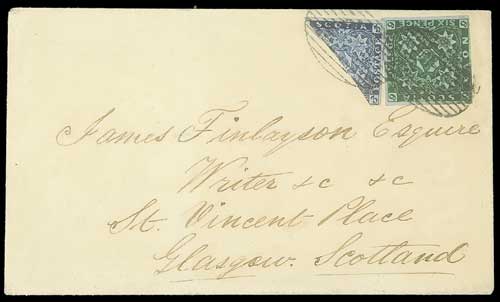 SCOTIA
POSTAGE
SIX PENCE
NOVA
SCOTIA
James Finlayson Esquire
Writer &c &c
St. Vincent Place
Glasgow. Scotland